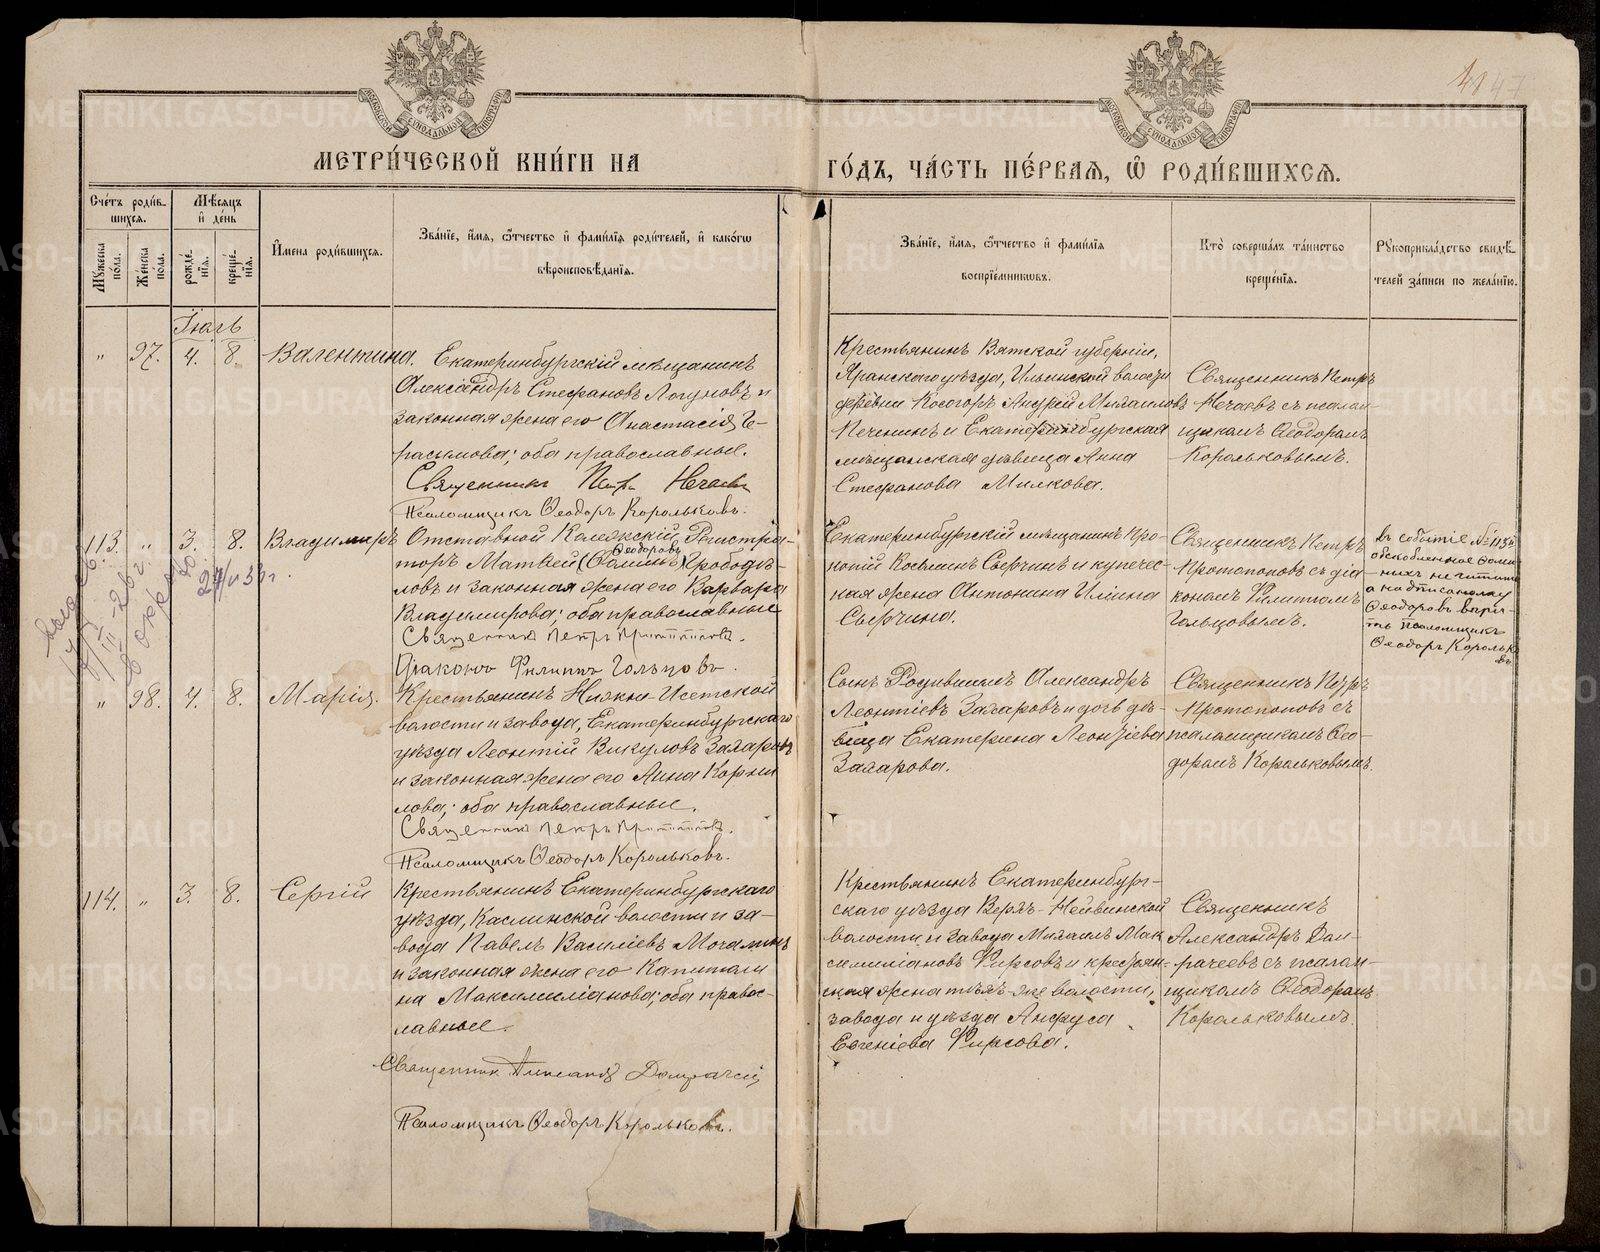 41 47
МЕТРИ́ЧЕСКОЙ КНИ́ГИ НА
ГО́ДЪ, ЧА́СТЬ ПЕ́РВАЯ, Ѿ РОДИ́ВШИХСЯ.
Сче́тъ роди́в-
шихся.
Мѣ́сяцъ
и де́нь
Му́жеска
по́ла.
Же́нска
по́ла.
рожде́-
нїя.
креще́-
нїя.
И́мена роди́вшихся.
Зва́нїе, и́мя, ѻ́тчество и фами́лїя роди́телей, и како́гѡ
вѣроисповѣ́данїя.
Зва́нїе, и́мя, ѻ́тчество и фами́лїя
воспрїе́мниковъ.
Кто̀ соверша́лъ та́инство
креще́нїя.
Рукоприкла́дство свидѣ́-
телей за́писи по жела́нїю.
Іюль
" 97. 4. 8. Валентина.
Екатеринбургскій мѣщанинъ
Александръ Стефановъ Логуновъ и
законная жена его Анастасія Ге-
расимова; оба православные.
Священникъ Петръ Нечаевъ
Псаломщикъ Ѳеодоръ Корольковъ.
Крестьянинъ Вятской губерніи,
Яранскаго уѣзда, Ильинской волости
деревни Косогоръ Андрей Михаиловъ
Печенинъ и Екатеринбургская
мѣщанская дѣвица Анна
Стефанова Милкова.
Священникъ Петръ
Нечаевъ съ псалом-
щикомъ Ѳеодоромъ
Корольковымъ.
113. " 3. 8. Владимиръ
Отставной Коллежскій Регистра-
торъ Матвей (Ѳоминъ) Ѳеодоровъ
ловъ и законная жена его Варвара
Владимирова; оба православные
Священникъ Петръ Протопоповъ.
Діаконъ Филиппъ Гольцовъ.
Екатеринбургскій мѣщанинъ Про-
копій Косминъ Сверчинъ и купечес-
кая жена Антонина Ильина
Сверчина.
Священникъ Петръ
Протопоповъ съ діа-
кономъ Филиппомъ
Гольцовымъ.
въ событіе № 113й
обскобленное Фоми-
нихъ не читать
а надписанному
Ѳеодоровъ вѣри-
ть Псаломщикъ
Ѳеодоръ Корольк
въ
" 98. 4. 8. Марія.
Крестьянинъ Нижне-Исетской
волости и завода, Екатеринбургскаго
уѣзда Леонтій Викуловъ Захаровъ
и законная жена его Анна Корни-
лова; оба православные.
Священникъ Петръ Протопоповъ.
Псаломщикъ Ѳеодоръ Корольковъ.
Сынъ Родившихъ Александръ
Леонтіевъ Захаровъ и дочь дѣ-
вица Екатерина Леонтіева
Захарова.
Священникъ Петръ
Протопоповъ съ
псаломщикомъ Ѳео-
доромъ Корольковымъ
114. " 3. 8. Сергій
Крестьянинъ Екатеринбургскаго
уѣзда, Каслинской волости и за-
вода Павелъ Василіевъ Мочалинъ
и законная жена его Капитоли
на Максимиліанова; оба правос-
лавные.
Священникъ Александръ
Псаломщикъ Ѳеодоръ Корольковъ.
Крестьянинъ Екатеринбург-
скаго уѣзда Верхъ-Нейвинской
волости и завода Михаилъ Мак
симиліановъ Фирсовъ и крестьян-
ская жена тѣхъ-же волости,
завода и уѣзда Анфуса
Евгеніева Фирсова.
Священникъ
Александръ Дом-
рачеевъ съ псалом-
щикомъ Ѳеодоромъ
Корольковымъ.